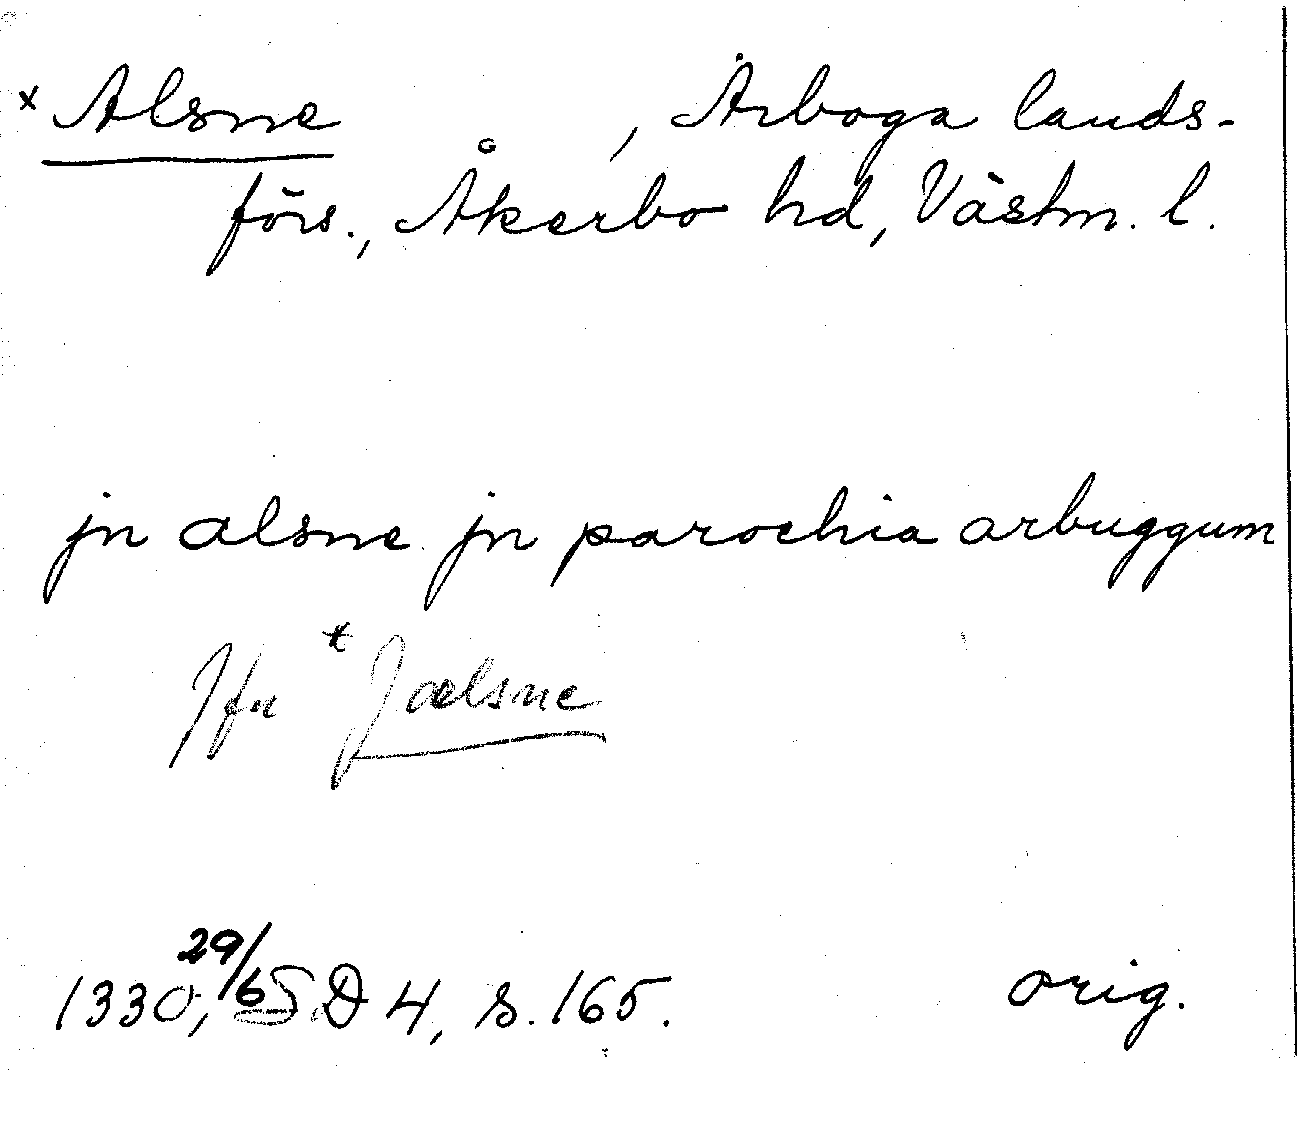 x Alsne , Arboga lands-
förs., Åkerbo hd, Västm. l.
jn alsne jn parochia arbuggum
Jfr x Jælsne
1330, 29/6 SD 4, s. 165. orig.